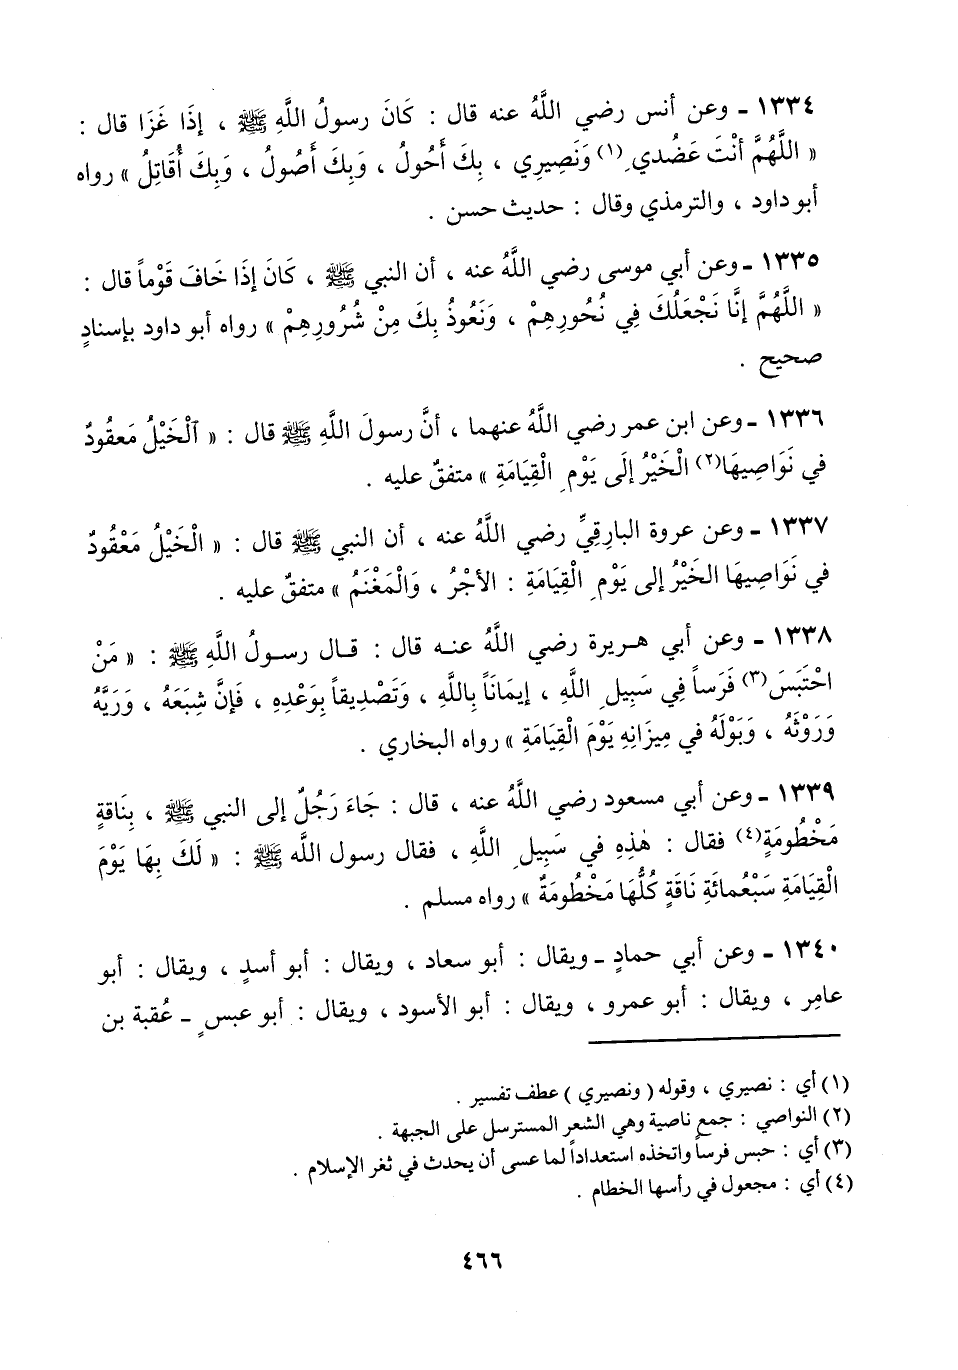 ١٣٣٤ ـ وعن أنس رضي اللَّهُ عنه قال : كَانَ رسولُ اللَّهِ ﷺ ، إذَا غَزَا قال :
« اللَّهُمَّ أنْتَ عَضُدي(١) وَنَصِيرِي ، بِكَ أَحُولُ ، وَبِكَ أَصُولُ ، وَبِكَ أُقَاتِلُ » رواه
أبو داود ، والترمذي وقال : حديث حسن .
١٣٣٥ ـ وعن أبي موسى رضي اللَّهُ عنه ، أن النبي ﷺ ، كَانَ إذَا خَافَ قَوْماً قال :
« اللَّهُمَّ إنَّا نَجْعَلُكَ فِي نُحُورِهِمْ ، وَنَعُوذُ بِكَ مِنْ شُرُورِهِمْ » رواه أبو داود بإسنادٍ
صحيح .
١٣٣٦ ـ وعن ابن عمر رضي اللَّهُ عنهما ، أنَّ رسولَ اللَّهِ ﷺ قال : « اَلْخَيْلُ مَعقُودٌ
في نَوَاصِيهَا(٢) الْخَيْرُ إلَى يَوْمِ الْقِيَامَةِ » متفقٌ عليه .
١٣٣٧ ـ وعن عروة البارِقِيِّ رضي اللَّهُ عنه ، أن النبي ﷺ قال : « الْخَيْلُ مَعْقُودٌ
في نَوَاصِيهَا الخَيْرُ إلى يَوْمِ الْقِيَامَةِ : الأجْرُ ، وَالْمَغْنَمُ » متفقٌ عليه .
١٣٣٨ ـ وعن أبي هـريرة رضي اللَّهُ عنـه قال : قـال رسـولُ اللَّهِ ﷺ : « مَنْ
احْتَبَسَ(٣) فَرَساً فِي سَبِيلِ اللَّهِ ، إيمَانَاً بِاللَّهِ ، وَتَصْدِيقاً بِوَعْدِهِ ، فَإنَّ شِبَعَهُ ، وَرَيَّهُ
وَرَوْثَهُ ، وَبَوْلَهُ في مِيزَانِهِ يَوْمَ الْقِيَامَةِ » رواه البخاري .
١٣٣٩ ـ وعن أبي مسعود رضي اللَّهُ عنه ، قال : جَاءَ رَجُلٌ إلى النبي ﷺ ، بِنَاقةٍ
مَخْطُومَةٍ(٤) فقال : هٰذِهِ في سَبِيلِ اللَّهِ ، فقال رسول اللَّه ﷺ : « لَكَ بِهَا يَوْمَ
الْقِيَامَةِ سَبْعُمائَةِ نَاقَةٍ كُلُّهَا مَخْطُومَةٌ » رواه مسلم .
١٣٤٠ ـ وعن أبي حمادٍ ـ ويقال : أبو سعاد ، ويقال : أبو أسدٍ ، ويقال : أبو
عامِر ، ويقال : أبو عمرو ، ويقال : أبو الأسود ، ويقال : أبو عبسٍ ـ عُقبة بن
(١) أي : نصيري ، وقوله ( ونصيري ) عطف تفسير .
(٢) النواصي : جمع ناصية وهي الشعر المسترسل على الجبهة .
(٣) أي : حبس فرساً واتخذه استعداداً لما عسى أن يحدث في ثغر الإسلام .
(٤) أي : مجعول في رأسها الخطام .
٤٦٦